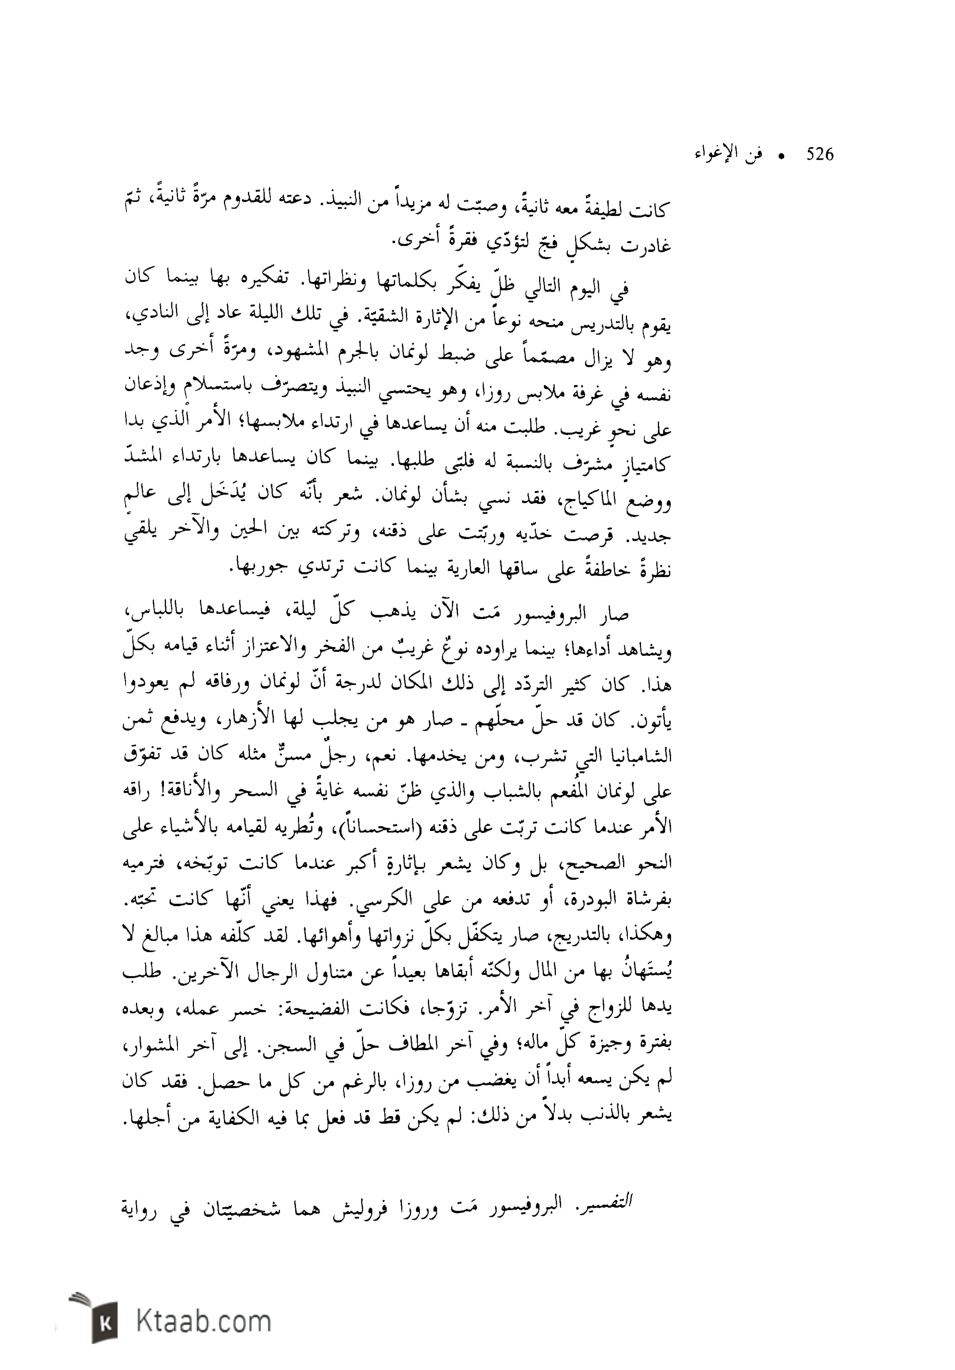 526 • فن الإغواء
كانت لطيفةً معه ثانيةً، وصبّت له مزيداً من النبيذ. دعته للقدوم مرّةً ثانيةً، ثمّ
غادرت بشكلٍ فجّ لتؤدّي فقرةً أخرى.
في اليوم التالي ظلّ يفكّر بكلماتها ونظراتها. تفكيره بها بينما كان
يقوم بالتدريس منحه نوعاً من الإثارة الشقيّة. في تلك الليلة عاد إلى النادي،
وهو لا يزال مصمّماً على ضبط لونمان بالجرم المشهود، ومرّةً أخرى وجد
نفسه في غرفة ملابس روزا، وهو يحتسي النبيذ ويتصرّف باستسلامٍ وإذعان
على نحوٍ غريب. طلبت منه أن يساعدها في ارتداء ملابسها؛ الأمر الذي بدا
كامتيازٍ مشرّف بالنسبة له فلبّى طلبها. بينما كان يساعدها بارتداء المشدّ
ووضع الماكياج، فقد نسي بشأن لونمان. شعر بأنّه كان يُدَخَل إلى عالمٍ
جديد. قرصت خدّيه وربّتت على ذقنه، وتركته بين الحين والآخر يلقي
نظرةً خاطفةً على ساقها العارية بينما كانت ترتدي جوربها.
صار البروفيسور مَت الآن يذهب كلّ ليلة، فيساعدها باللباس،
ويشاهد أداءها؛ بينما يراوده نوعٌ غريبٌ من الفخر والاعتزاز أثناء قيامه بكلّ
هذا. كان كثير التردّد إلى ذلك المكان لدرجة أنّ لونمان ورفاقه لم يعودوا
يأتون. كان قد حلّ محلّهم ـ صار هو من يجلب لها الأزهار، ويدفع ثمن
الشامبانيا التي تشرب، ومن يخدمها. نعم، رجلٌ مسنٌّ مثله كان قد تفوّق
على لونمان المُفعم بالشباب والذي ظنّ نفسه غايةً في السحر والأناقة! راقه
الأمر عندما كانت تربّت على ذقنه (استحساناً)، وتُطريه لقيامه بالأشياء على
النحو الصحيح، بل وكان يشعر بإثارةٍ أكبر عندما كانت توبّخه، فترميه
بفرشاة البودرة، أو تدفعه من على الكرسي. فهذا يعني أنّها كانت تحبّه.
وهكذا، بالتدريج، صار يتكفّل بكلّ نزواتها وأهوائها. لقد كلّفه هذا مبالغ لا
يُستَهانُ بها من المال ولكنّه أبقاها بعيداً عن متناول الرجال الآخرين. طلب
يدها للزواج في آخر الأمر. تزوّجا، فكانت الفضيحة: خسر عمله، وبعده
بفترة وجيزة كلّ ماله؛ وفي آخر المطاف حلّ في السجن. إلى آخر المشوار،
لم يكن يسعه أبداً أن يغضب من روزا، بالرغم من كل ما حصل. فقد كان
يشعر بالذنب بدلاً من ذلك: لم يكن قط قد فعل بما فيه الكفاية من أجلها.
التفسير. البروفيسور مَت وروزا فروليش هما شخصيّتان في رواية
Ktaab.com